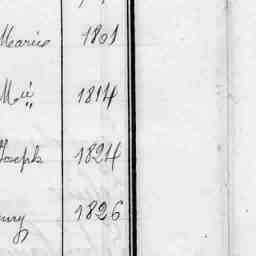 Marie 1801
Mie 1814
Joseph 1824
1826